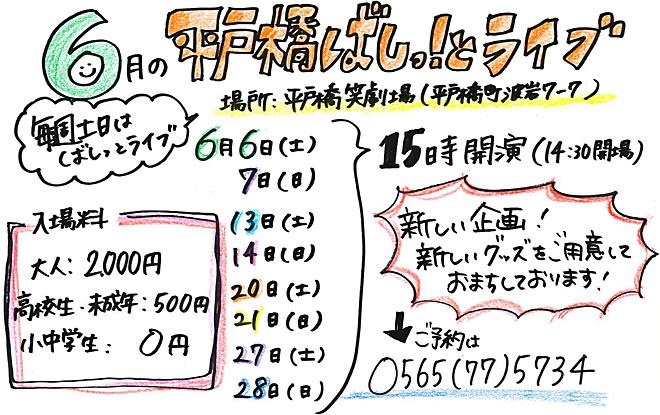 6月の 平戸橋ばしっ!とライブ
場所:平戸橋笑劇場(平戸橋町波岩7-7)
毎週土日は
ばしっとライブ
6月6日(土)
7日(日)
13日(土)
14日(日)
20日(土)
21日(日)
27日(土)
28日(日)
15時開演(14:30開場)
入場料
大人:2,000円
高校生・未成年:500円
小中学生: 0円
新しい企画!
新しいグッズをご用意して
おまちしております!
ご予約は
0565(77)5734